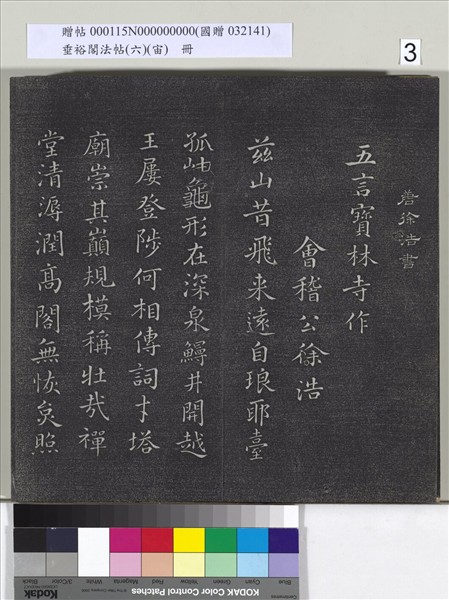 贈帖 000115N000000000(國贈 032141)
垂裕閣法帖(六)(宙) 冊
3
唐徐浩書
五言寶林寺作
會稽公徐浩
茲山昔飛来遠自琅耶臺
孤岫龜形在深泉鰻井開越
王屢登陟何相傳詞才塔
廟崇其巔規模稱壯哉禪
堂清溽潤高閣無恢炱照
Kodak
KODAK Color Control Patches
Blue Cyan Green Yellow Red Magenta White 3/Color Black